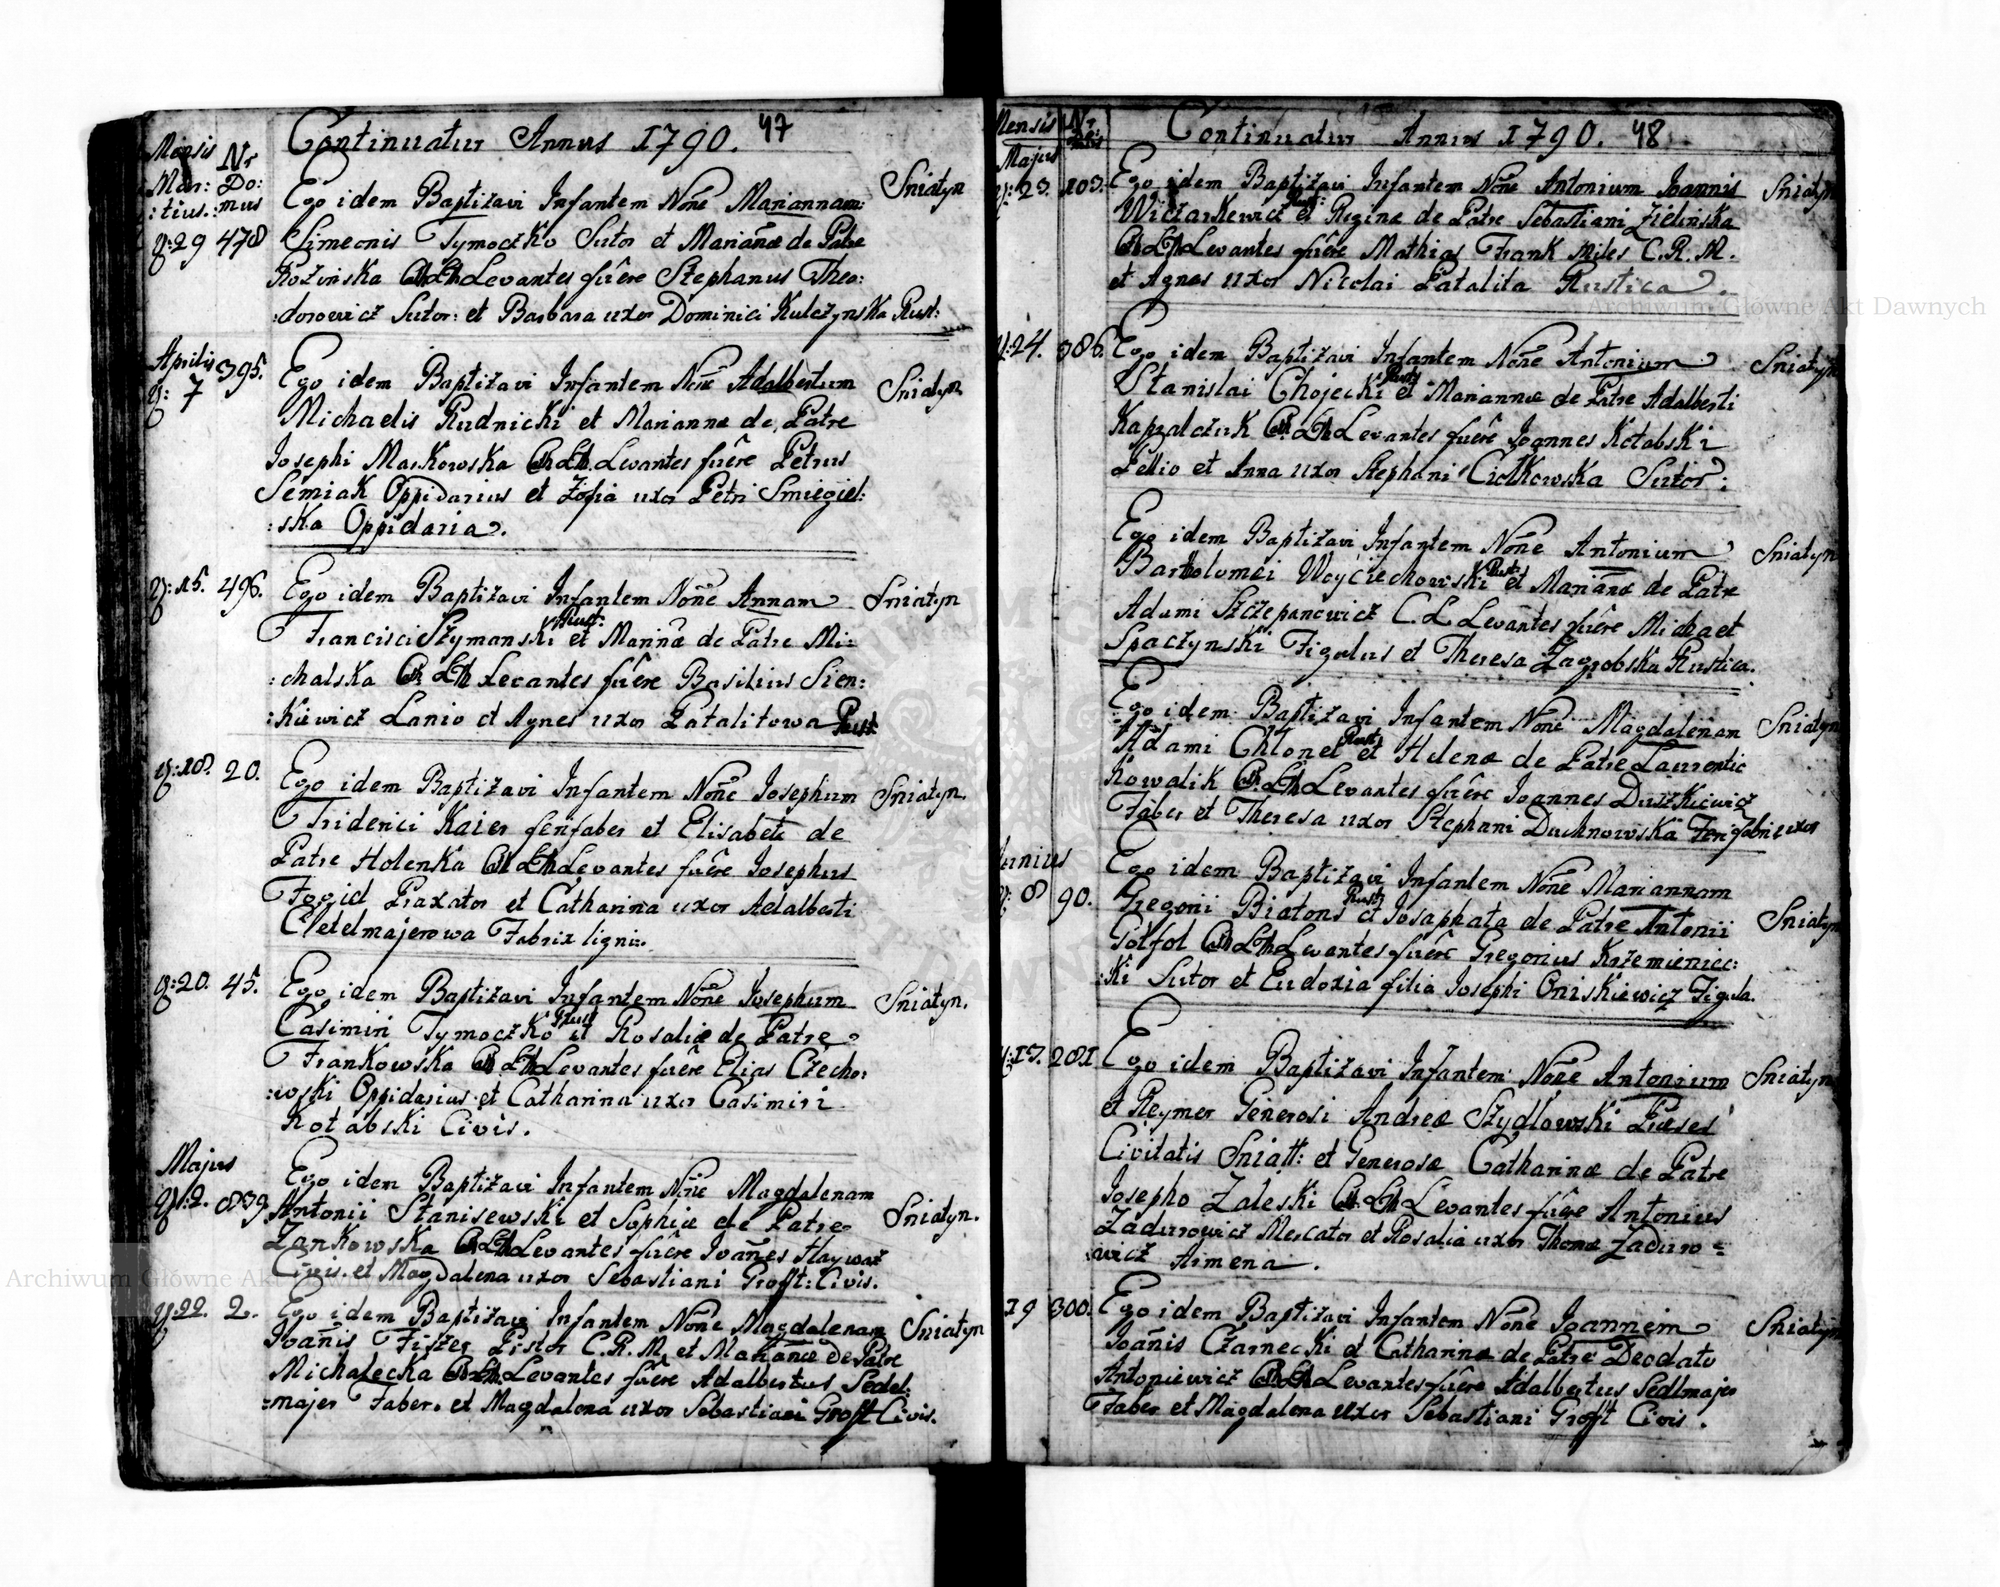 Continuatur Annus 1790. 47
Mensis Nr
Mar: Do:
:tius.: mus
Ego idem Baptizavi Infantem Noñe Mariannam Sniatyn
29 478 Simeonis Tymoczko Sutor et Mariañæ de Patre
Rozinska Levantes fuêre Stephanus Theo:
:dorowicz Sutor: et Barbara uxor Dominici Kulczynska Rust:
Aprilis 395.
7 Ego idem Baptizavi Infantem Noñe Adalbertum Sniatyn
Michaelis Rudnicki et Mariannæ de Patre
Iosephi Maskowska Levantes fuêre Petrus
Semiak Oppidarius et Zofia uxor Petri Smiegiel:
:ska Oppidaria.
15. 496. Ego idem Baptizavi Infantem Noñe Annam Sniatyn
Francisci Szymanski Rust: et Marinæ de Patre Mi:
:chalska Levantes fuêre Basilius Sien:
:kiewicz Lanio et Agnes uxor Patalitowa Rust
18. 20. Ego idem Baptizavi Infantem Noñe Iosephum Sniatyn.
Friderici Kaier ferifaber et Elisabete de
Patre Holenka Levantes fuêre Iosephus
Praxator et Catharina uxor Adalberti
Cletelmajerowa Fabrix ligni:
20. 45. Ego idem Baptizavi Infantem Noñe Iosephum Sniatyn.
Casimiri Tymoczko Rust et Rosaliæ de Patre
Frankowska Levantes fuêre Elias Czecho:
:wski Oppidarius et Catharina uxor Casimiri
Kotabski Civis.
Majus
2. 839. Ego idem Baptizavi Infantem Noñe Magdalenam Sniatyn.
Antonii Stanisewski et Sophiæ de Patre
Zankowska Levantes fuêre Ioañes Haywaz
Civis. et Magdalena uxor Sebastiani Grofft: Civis.
22. 2. Ego idem Baptizavi Infantem Noñe Magdalenam Sniatyn
Ioañis Fiszer Pistor C.R.M. et Mariañæ de Patre
Michalecka Levantes fuêre Adalbertus Sedel:
:majer Faber. et Magdalena uxor Sebastiani Grofft Civis.
Mensis Nr Continuatur Annus 1790. 48
Majus
23. 103. Ego idem Baptizavi Infantem Noñe Antonium Ioannis Sniatyn
Wiczarkewicz Rust: et Reginæ de Patre Sebastiani Zielinska
Levantes fuêre Mathias Frank Miles C.R.M.
et Agnes uxor Nicolai Patalita Rustica.
24. 386. Ego idem Baptizavi Infantem Noñe Antonium Sniatyn
Stanislai Chojecki Rust: et Mariannæ de Patre Adalberti
Kapzalczuk Levantes fuêre Ioannes Kotabski
Pellio et Anna uxor Stephani Ciolkowska Sutor:
Ego idem Baptizavi Infantem Noñe Antonium Sniatyn
Bartholomei Woyciechowski Rust: et Mariañæ de Patre
Adami Szczepanowicz C.L Levantes fuêre Michael
Spaczynski Figulus et Theresa Zagrobska Rustica.
Ego idem Baptizavi Infantem Noñe Magdalenam Sniatyn
Adami Chlonet Rust: et Helenæ de Patre Laurentie
Kowalik Levantes fuêre Ioannes Duszkiewicz
Faber et Theresa uxor Stephani Duchnowska Ferifabri uxor
Iunius
8 90. Ego idem Baptizavi Infantem Noñe Mariannam Sniatyn
Gregorii Biatons Rust: et Iosaphata de Patre Antonii
Golfol Levantes fuêre Gregorius Krzemieniec:
:ki Sutor et Eudoxia filia Iosephi Oniskiewicz Figula.
13. 281 Ego idem Baptizavi Infantem Noñe Antonium Sniatyn
et Reymer Generosi Andreæ Szydlowski Præses
Civitatis Sniatt: et Generosæ Catharinæ de Patre
Iosepho Zaleski Levantes fuêre Antonius
Zadurowicz Mercator et Rosalia uxor Thomæ Zaduro=
:wicz Armena.
19 300. Ego idem Baptizavi Infantem Noñe Ioannem Sniatyn
Ioañis Czarnecki et Catharinæ de Patre Deodato
Antoniewicz Levantes fuêre Adalbertus Sedlmajer
Faber et Magdalena uxor Sebastiani Grofft Civis.
Archiwum Główne Akt Dawnych
Archiwum Główne Akt Dawnych